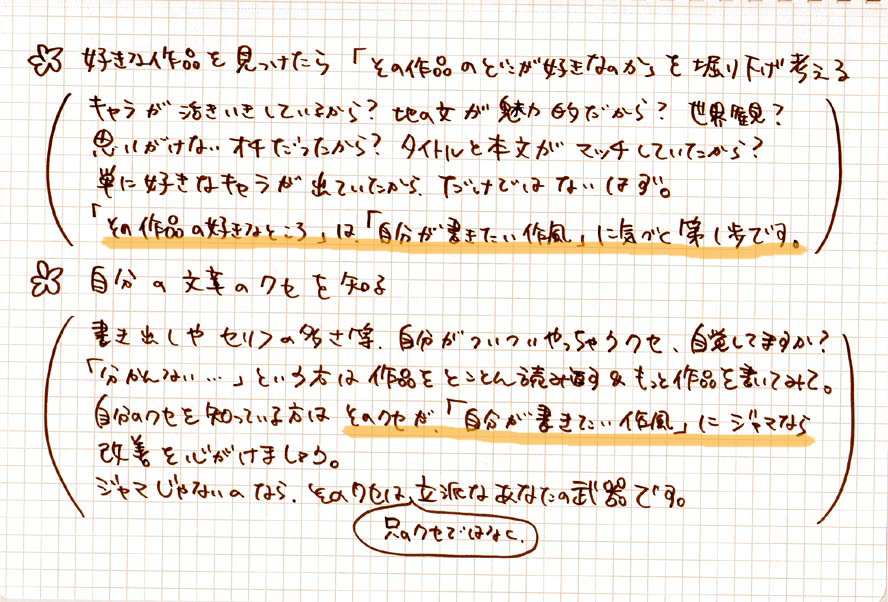 好きな作品を見つけたら「その作品のどこが好きなのか」を掘り下げ考える
キャラが活きいきしているから？ 地の文が魅力的だから？ 世界観？
思いがけないオチだったから？ タイトルと本文がマッチしていたから？
単に好きなキャラが出ていたから、だけではないはず。
「その作品の好きなところ」は、「自分が書きたい作風」に気づく第1歩です。
自分の文章のクセを知る
書き出しやセリフの多さ等、自分がついついやっちゃうクセ、自覚してますか？
「分かんない…」という方は作品をとことん読み返す＆もっと作品を書いてみて。
自分のクセを知っている方はそのクセが、「自分が書きたい作風」にジャマなら
改善を心がけましょう。
ジャマじゃないのなら、そのクセは立派なあなたの武器です。
只のクセではなく、